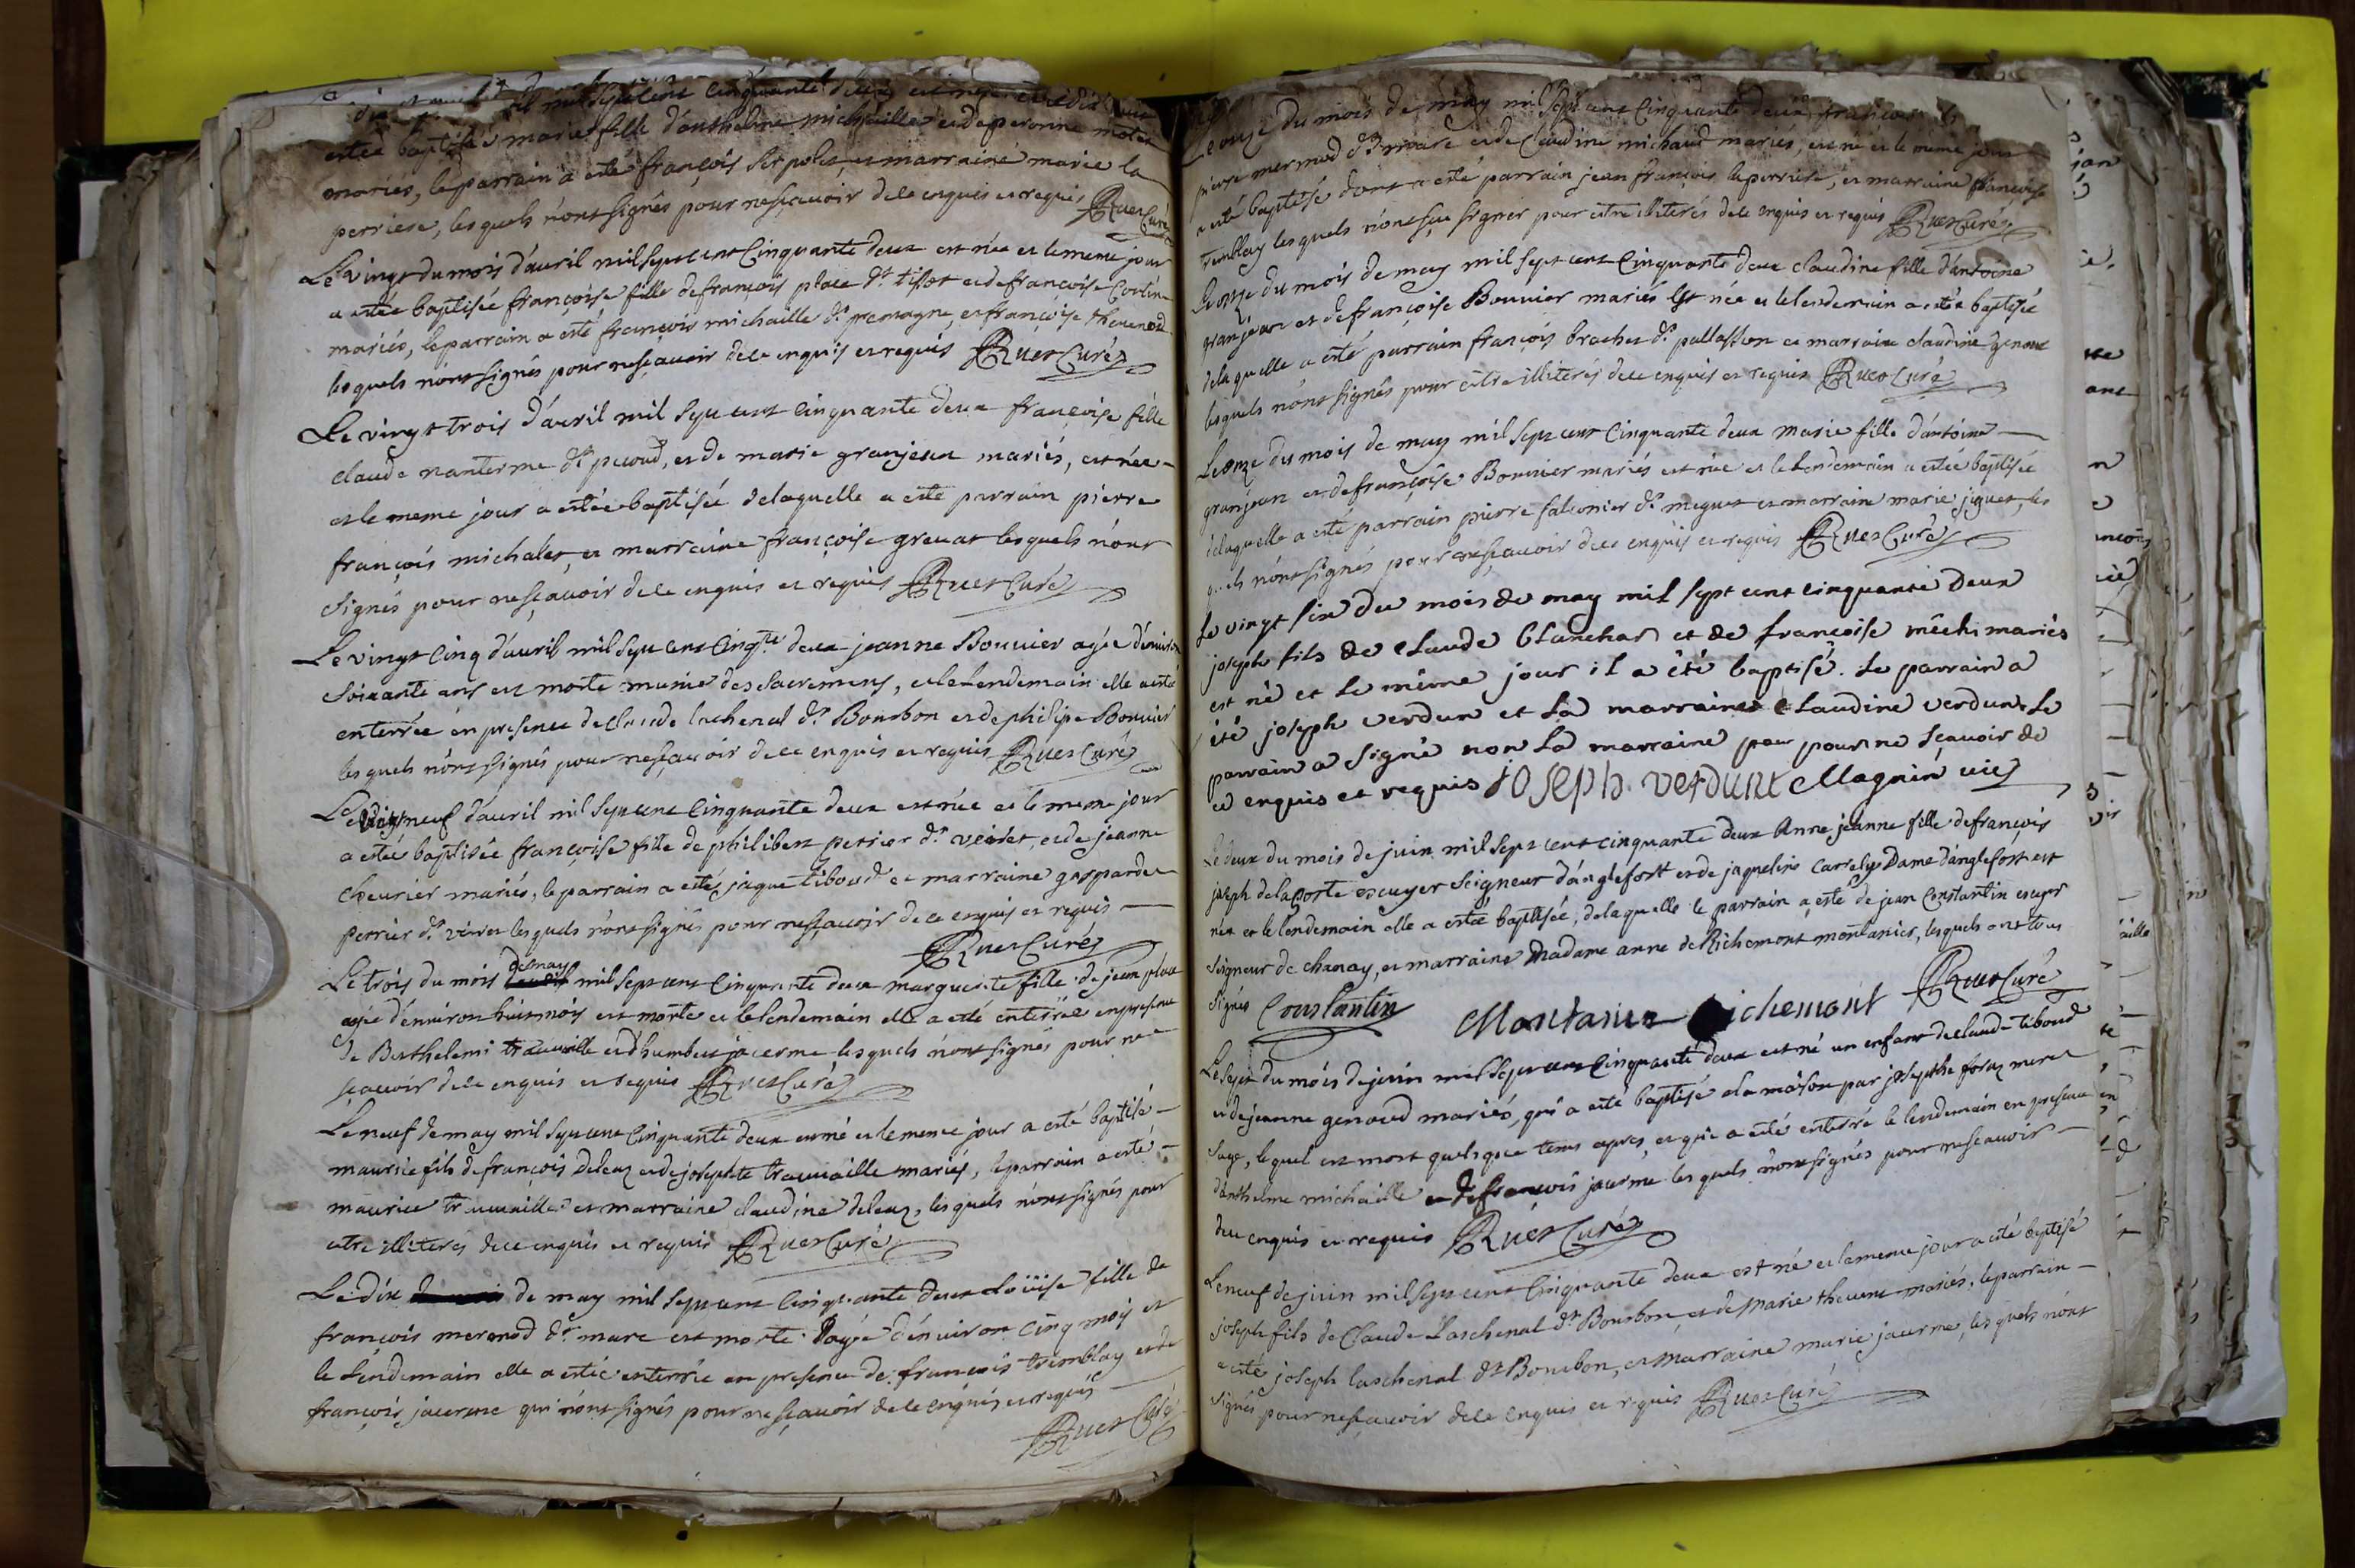 mil sept cent cinquante deux est née
estée baptisée marie fille d'anthelme michaille et de peronne
mariés, le parrain a esté françois serpolet et marraine marie la
perriere, lesquels n'ont signés pour ne sçavoir de ce enquis et requis Ruet Curé
Le vingt du mois d'avril mil sept cent Cinquante deux est née et le meme jour
a estée baptisée françoise fille de françois place dt tissot et de françoise
mariés, le parrain a esté françois michaille dt premagne, et françoise thevenod
lesquels n'ont signés pour ne sçavoir de ce enquis et requis Ruet Curé
Le vingt trois d'avril mil sept cent cinquante deux françoise fille
claude nanterme dt pecoud, et de marie granjean mariés, est née
et le meme jour a estée baptisée de laquelle a esté parrain pierre
françois michalet, et marraine françoise grevat lesquels n'ont
signés pour ne sçavoir de ce enquis et requis Ruet Curé
Le vingt cinq d'avril mil sept cent cinqte deux jeanne Bouvier agée d'environ
soixante ans est morte munie des sacremens, et le Lendemain elle a esté
enterrée en presence de Claude lachenal dt Bourbon et de philipe Bouvier
lesquels n'ont signés pour ne sçavoir de ce enquis et requis Ruet Curé
Le neuf d'avril mil sept cent Cinquante deux est née et le meme jour
a estée baptisée françoise fille de philibert perrier dt veiret, et de jeanne
chevrier mariés, le parrain a esté jaque tiboud et marraine gasparde
perrier dt lesquels n'ont signés pour ne sçavoir de ce enquis et requis
Ruet Curé
de may
Le trois du mois mil sept cent Cinquante deux marguerite fille de jean place
agée d'environ huit mois est morte et le lendemain elle a esté enterrée en presence
de Berthelemi travaille et d'humbert jacerme lesquels n'ont signés pour ne
sçavoir de ce enquis et requis Ruet Curé
Le neuf de may mil sept cent Cinquante deux est né et le meme jour a esté baptisé
maurice fils de françois deleaz et de josephte travaille mariés, le parrain a esté
maurice travaille et marraine claudine deleaz, lesquels n'ont signés pour
estre illiterés de ce enquis et requis Ruet Curé
Le dix de may mil sept cent Cinquante deux loüise fille de
françois mermod dt marc est morte agée d'environ cinq mois et
le Lendemain elle a estée enterrée en presence de françois tremblay et de
françois jacerme qui n'ont signés pour ne sçavoir de ce enquis et requis
Ruet Curé
Le onze du mois de may mil sept cent Cinquante deux françois
pierre mermod dt marc et de Claudine michaud mariés, est né et le meme jour
a esté baptisé dont a esté parrain jean françois la perriere, et marraine françoise
tremblay lesquels n'ont sçu signer pour estre illiterés de ce enquis et requis Ruet Curé
Le onze du mois de may mil sept cent Cinquante deux claudine fille d'antoine
granjean et de françoise Bouvier mariés est née et le lendemain a estée baptisée
de laquelle a esté parrain françois brachet dt et marraine claudine genoud
lesquels n'ont signés pour estre illiterés de ce enquis et requis Ruet Curé
Le onze du mois de may mil sept cent Cinquante deux marie fille d'antoine
granjean et de françoise Bouvier mariés est née et le lendemain a estée baptisée
de laquelle a esté parrain pierre falconier dt et marraine marie jiguet, les
quels n'ont signés pour ne sçavoir de ce enquis et requis Ruet Curé
Le vingt six du mois de may mil sept cent cinquante deux
joseph fils de claude blanchar et de françoise mariés
est né et le même jour il a été baptisé. Le parrain a
été joseph verdun et la marraine claudine verdun. Le
parrain a signé non la marraine pour pour ne sçavoir de
ce enquis et requis joseph. verdunt Magnin vic
Le deux du mois de juin mil sept cent cinquante deux Anne jeanne fille de françois
joseph delaporte escuyer seigneur d'anglefort et de jaqueline Carrely Dame d'anglefort est
née et le lendemain elle a estée baptisée, de laquelle le parrain a esté de jean Constantin escuyer
Seigneur de chanay, et marraine Madame anne de Richemont montanier, lesquels ont tous
signés Constantin Montanier Richemont Ruet Curé
Le sept du mois de juin mil sept cent Cinquante deux est né un enfant de claude tiboud
et de jeanne genoud mariés, qui a esté baptisé a la maison par josephte foraz mere
sage, lequel est mort quelque tems apres, et qui a esté enterré le lendemain en presence
d'anthelme michaille et de françois jacerme lesquels n'ont signés pour ne sçavoir
de ce enquis et requis Ruet Curé
Le neuf de juin mil sept cent Cinquante deux est né et le meme jour a esté baptisé
joseph fils de Claude Laschenal dt Bourbon, et de Marie thevenet mariés, le parrain
a esté joseph laschenal dt Bourbon, et marraine marie jacerme, lesquels n'ont
signés pour ne sçavoir de ce enquis et requis Ruet Curé